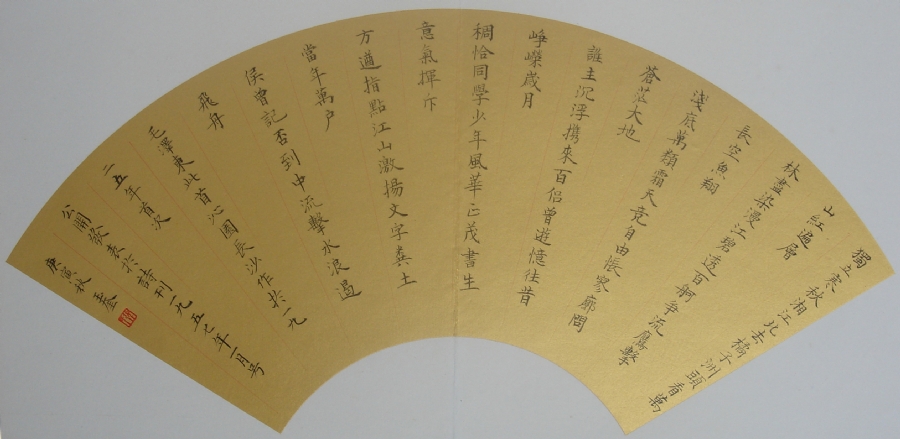 獨立寒秋湘江北去橘子洲頭看萬
山紅遍層
林盡染漫江碧透百舸爭流鷹擊
長空魚翔
淺底萬類霜天竞自由悵寥廓問
蒼茫大地
誰主沉浮携來百侣曾遊憶往昔
崢嶸歲月
稠恰同學少年風華正茂書生
意氣揮斥
方遒指點江山激揚文字糞土
當年萬户
侯曾記否到中流擊水浪遏
飛舟
毛澤東此首沁園長沙作於一九
二五年首次
公開發表於詩刊一九五七年一月号
庚寅秋